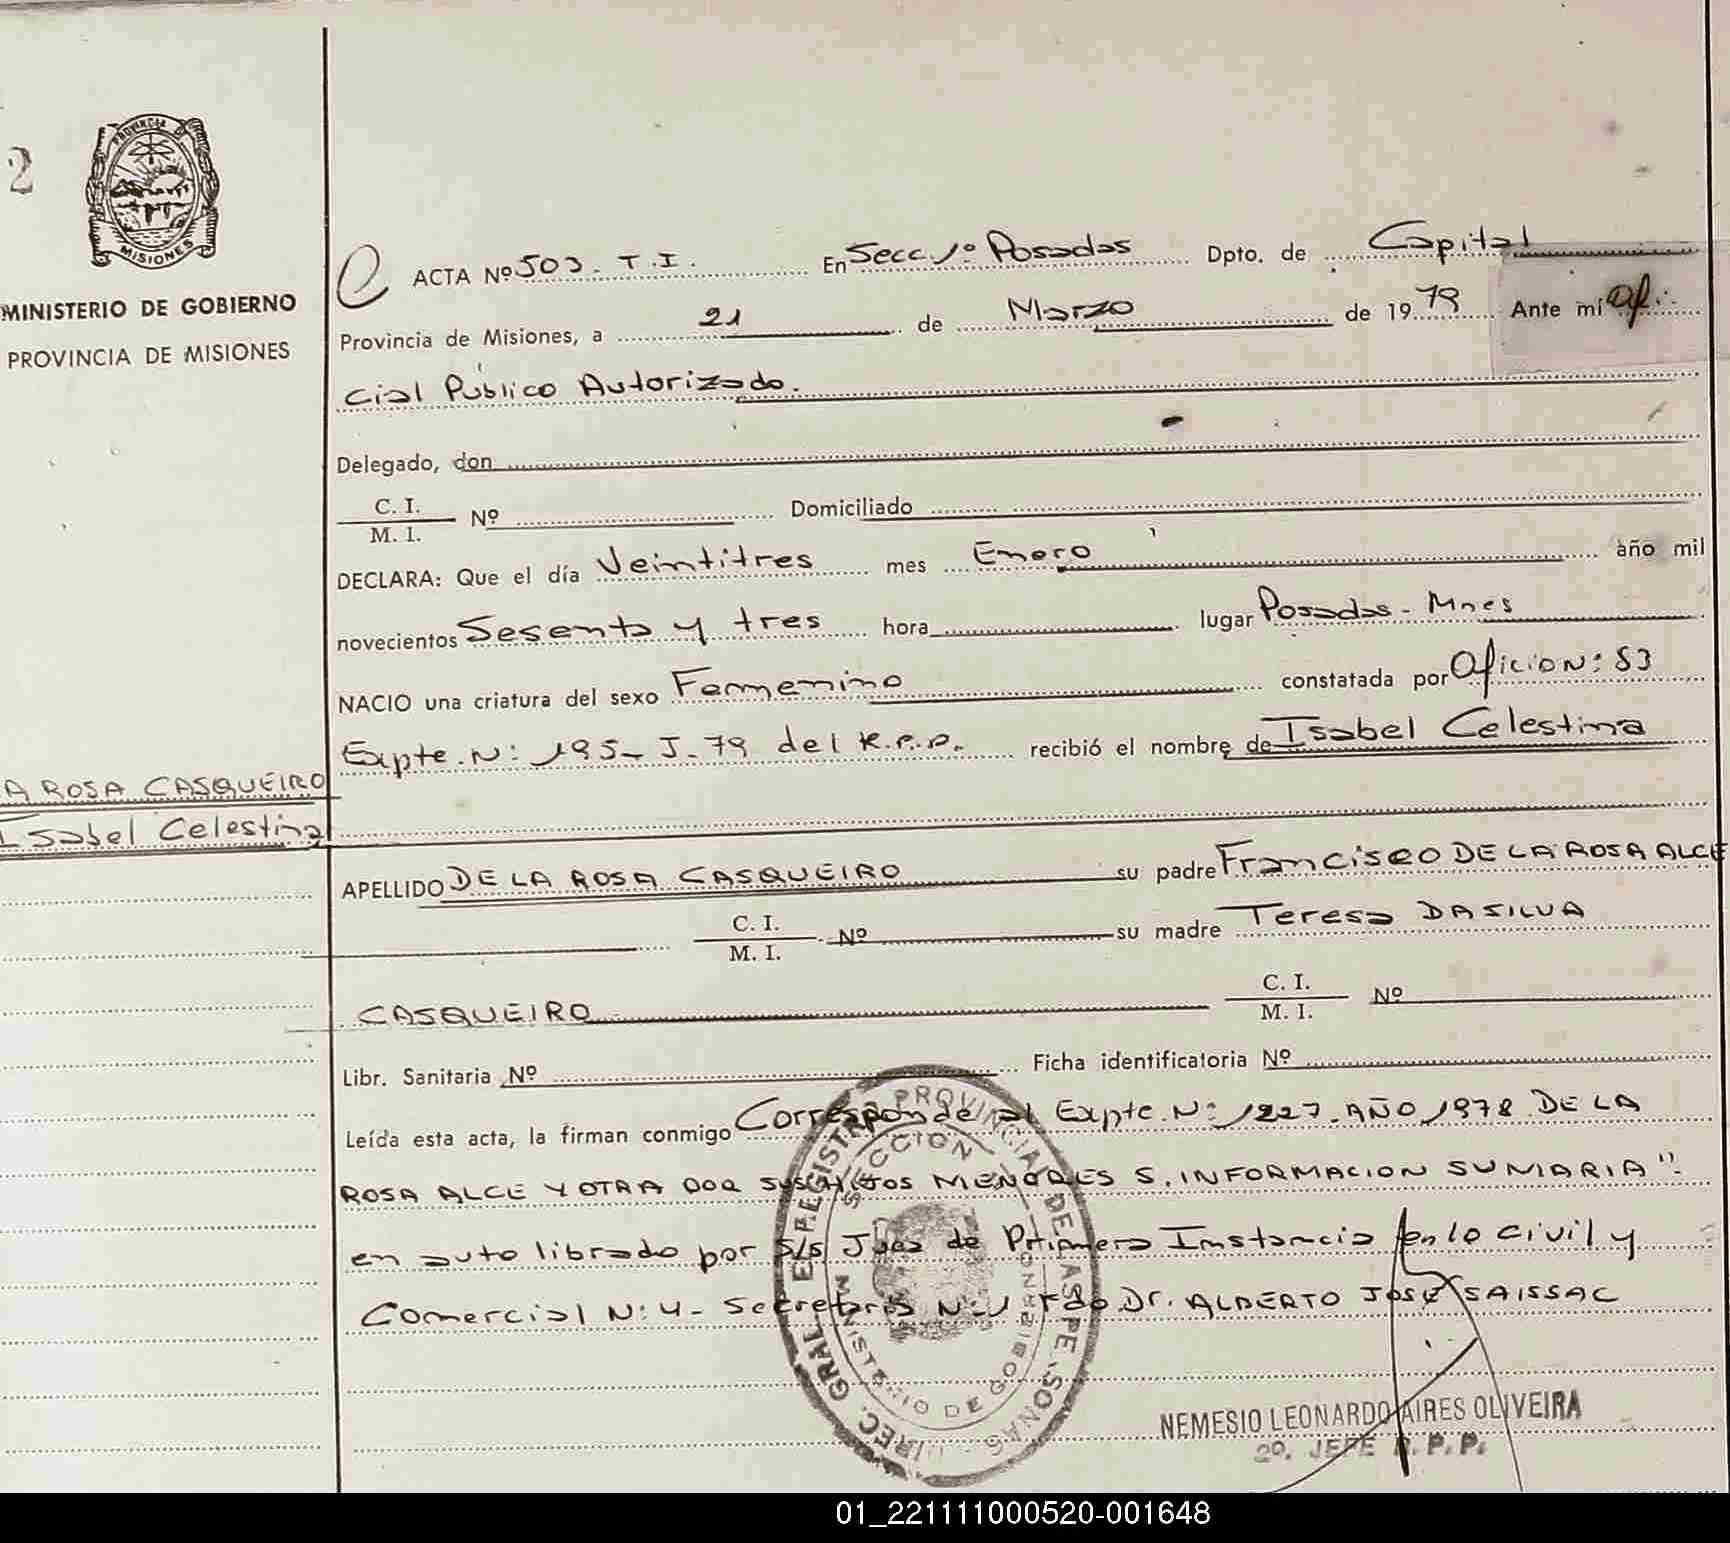 2
PROVINCIA DE
MISIONES
MINISTERIO DE GOBIERNO
PROVINCIA DE MISIONES
A ROSA CASQUEIRO
Isabel Celestina
ACTA Nº 503. T.I. En Secc. 1º Posadas Dpto. de Capital
Provincia de Misiones, a 21 de Marzo de 1979 Ante mí Ofi.
cial Público Autorizado.
Delegado, don
C. I. / M. I. Nº Domiciliado
DECLARA: Que el día Veintitres mes Enero año mil
novecientos Sesenta y tres hora lugar Posadas - Mnes
NACIO una criatura del sexo Femenino constatada por Oficio N: 83
Expte. N: 195- J- 79 del R.P.P. recibió el nombre de Isabel Celestina
APELLIDO DE LA ROSA CASQUEIRO su padre Francisco DE LA ROSA ALCE
C. I. / M. I. Nº su madre Teresa DASILVA
CASQUEIRO C. I. / M. I. Nº
Libr. Sanitaria Nº Ficha identificatoria Nº
Leída esta acta, la firman conmigo Corresponde al Expte. N: 1227. AÑO 1978 DE LA
ROSA ALCE Y OTRA POR SUS HIJOS MENORES S. INFORMACION SUMARIA".
en auto librado por S/S Juez de Primera Instancia en lo Civil y
Comercial N: 4 - Secretaria N: 1 Fdo Dr. ALBERTO JOSE SAISSAC
DIREC. GRAL. REGISTRO PROVINCIAL DE LAS PERSONAS
SECCION
MINISTERIO DE GOBIERNO
NEMESIO LEONARDO AIRES OLIVEIRA
2º. JEFE R. P. P.
01_221111000520-001648